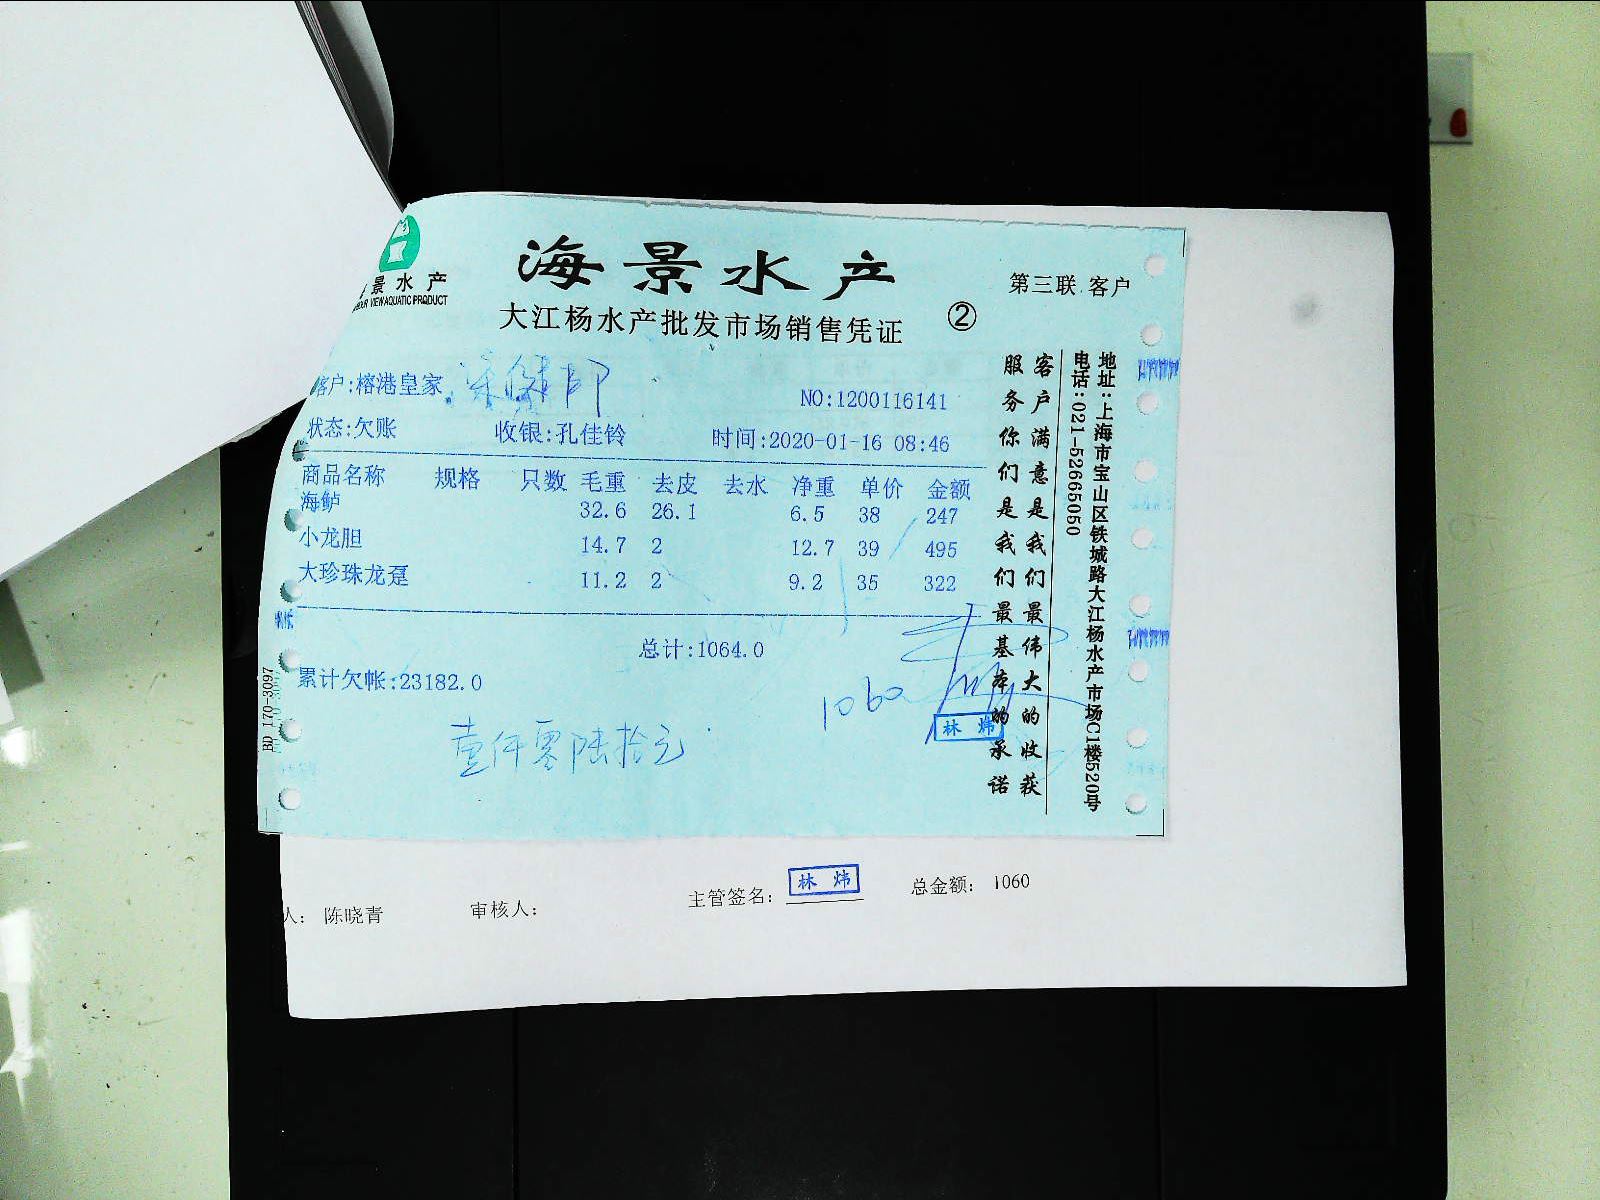 景水产
VIEW AQUATIC PRODUCT
海景水产
大江杨水产批发市场销售凭证
②
第三联 客户
客户:榕港皇家
NO:1200116141
状态:欠账 收银:孔佳铃 时间:2020-01-16 08:46
商品名称 规格 只数 毛重 去皮 去水 净重 单价 金额
海鲈 32.6 26.1 6.5 38 247
小龙胆 14.7 2 12.7 39 495
大珍珠龙趸 11.2 2 9.2 35 322
总计:1064.0
累计欠帐:23182.0
1060
林炜
壹仟零陆拾元
BD 170-3097
客户满意是我们最伟大的收获
服务你们是我们最基本的承诺
地址:上海市宝山区铁城路大江杨水产市场C1楼520号
电话:021-52665050
人: 陈晓青 审核人: 主管签名: 林炜 总金额: 1060